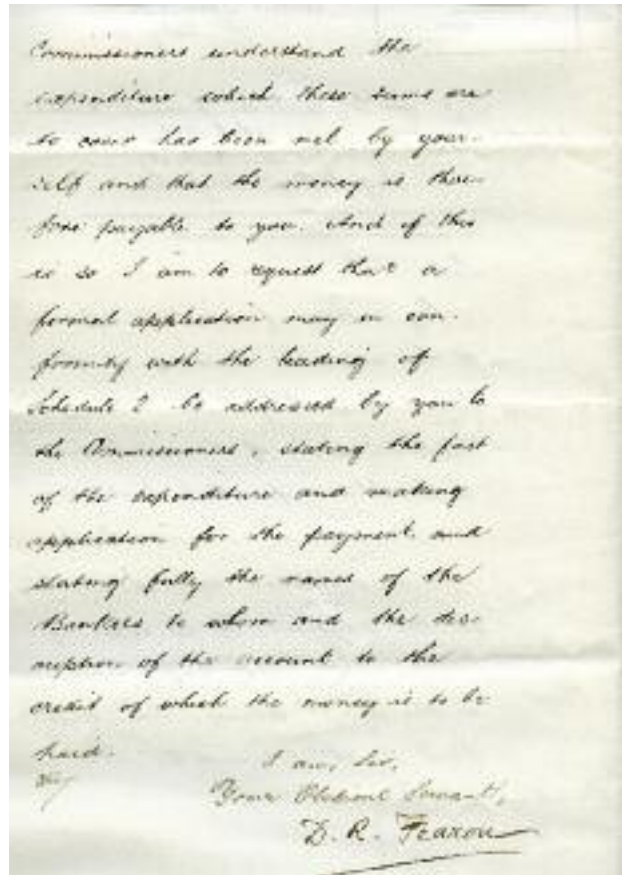 Commissioners understand the
expenditure which these sums are
to cover has been met by your-
self and that the money is there-
fore payable to you. And if this
is so I am to request that a
formal application may in con-
formity with the heading of
Schedule 2 be addressed by you to
the Commissioners, stating the fact
of the expenditure and making
application for the payment and
stating fully the names of the
Bankers to whom and the des-
cription of the account to the
credit of which the money is to be
paid.
I am, Sir,
Your Obedient Servant,
D. R. Fearon